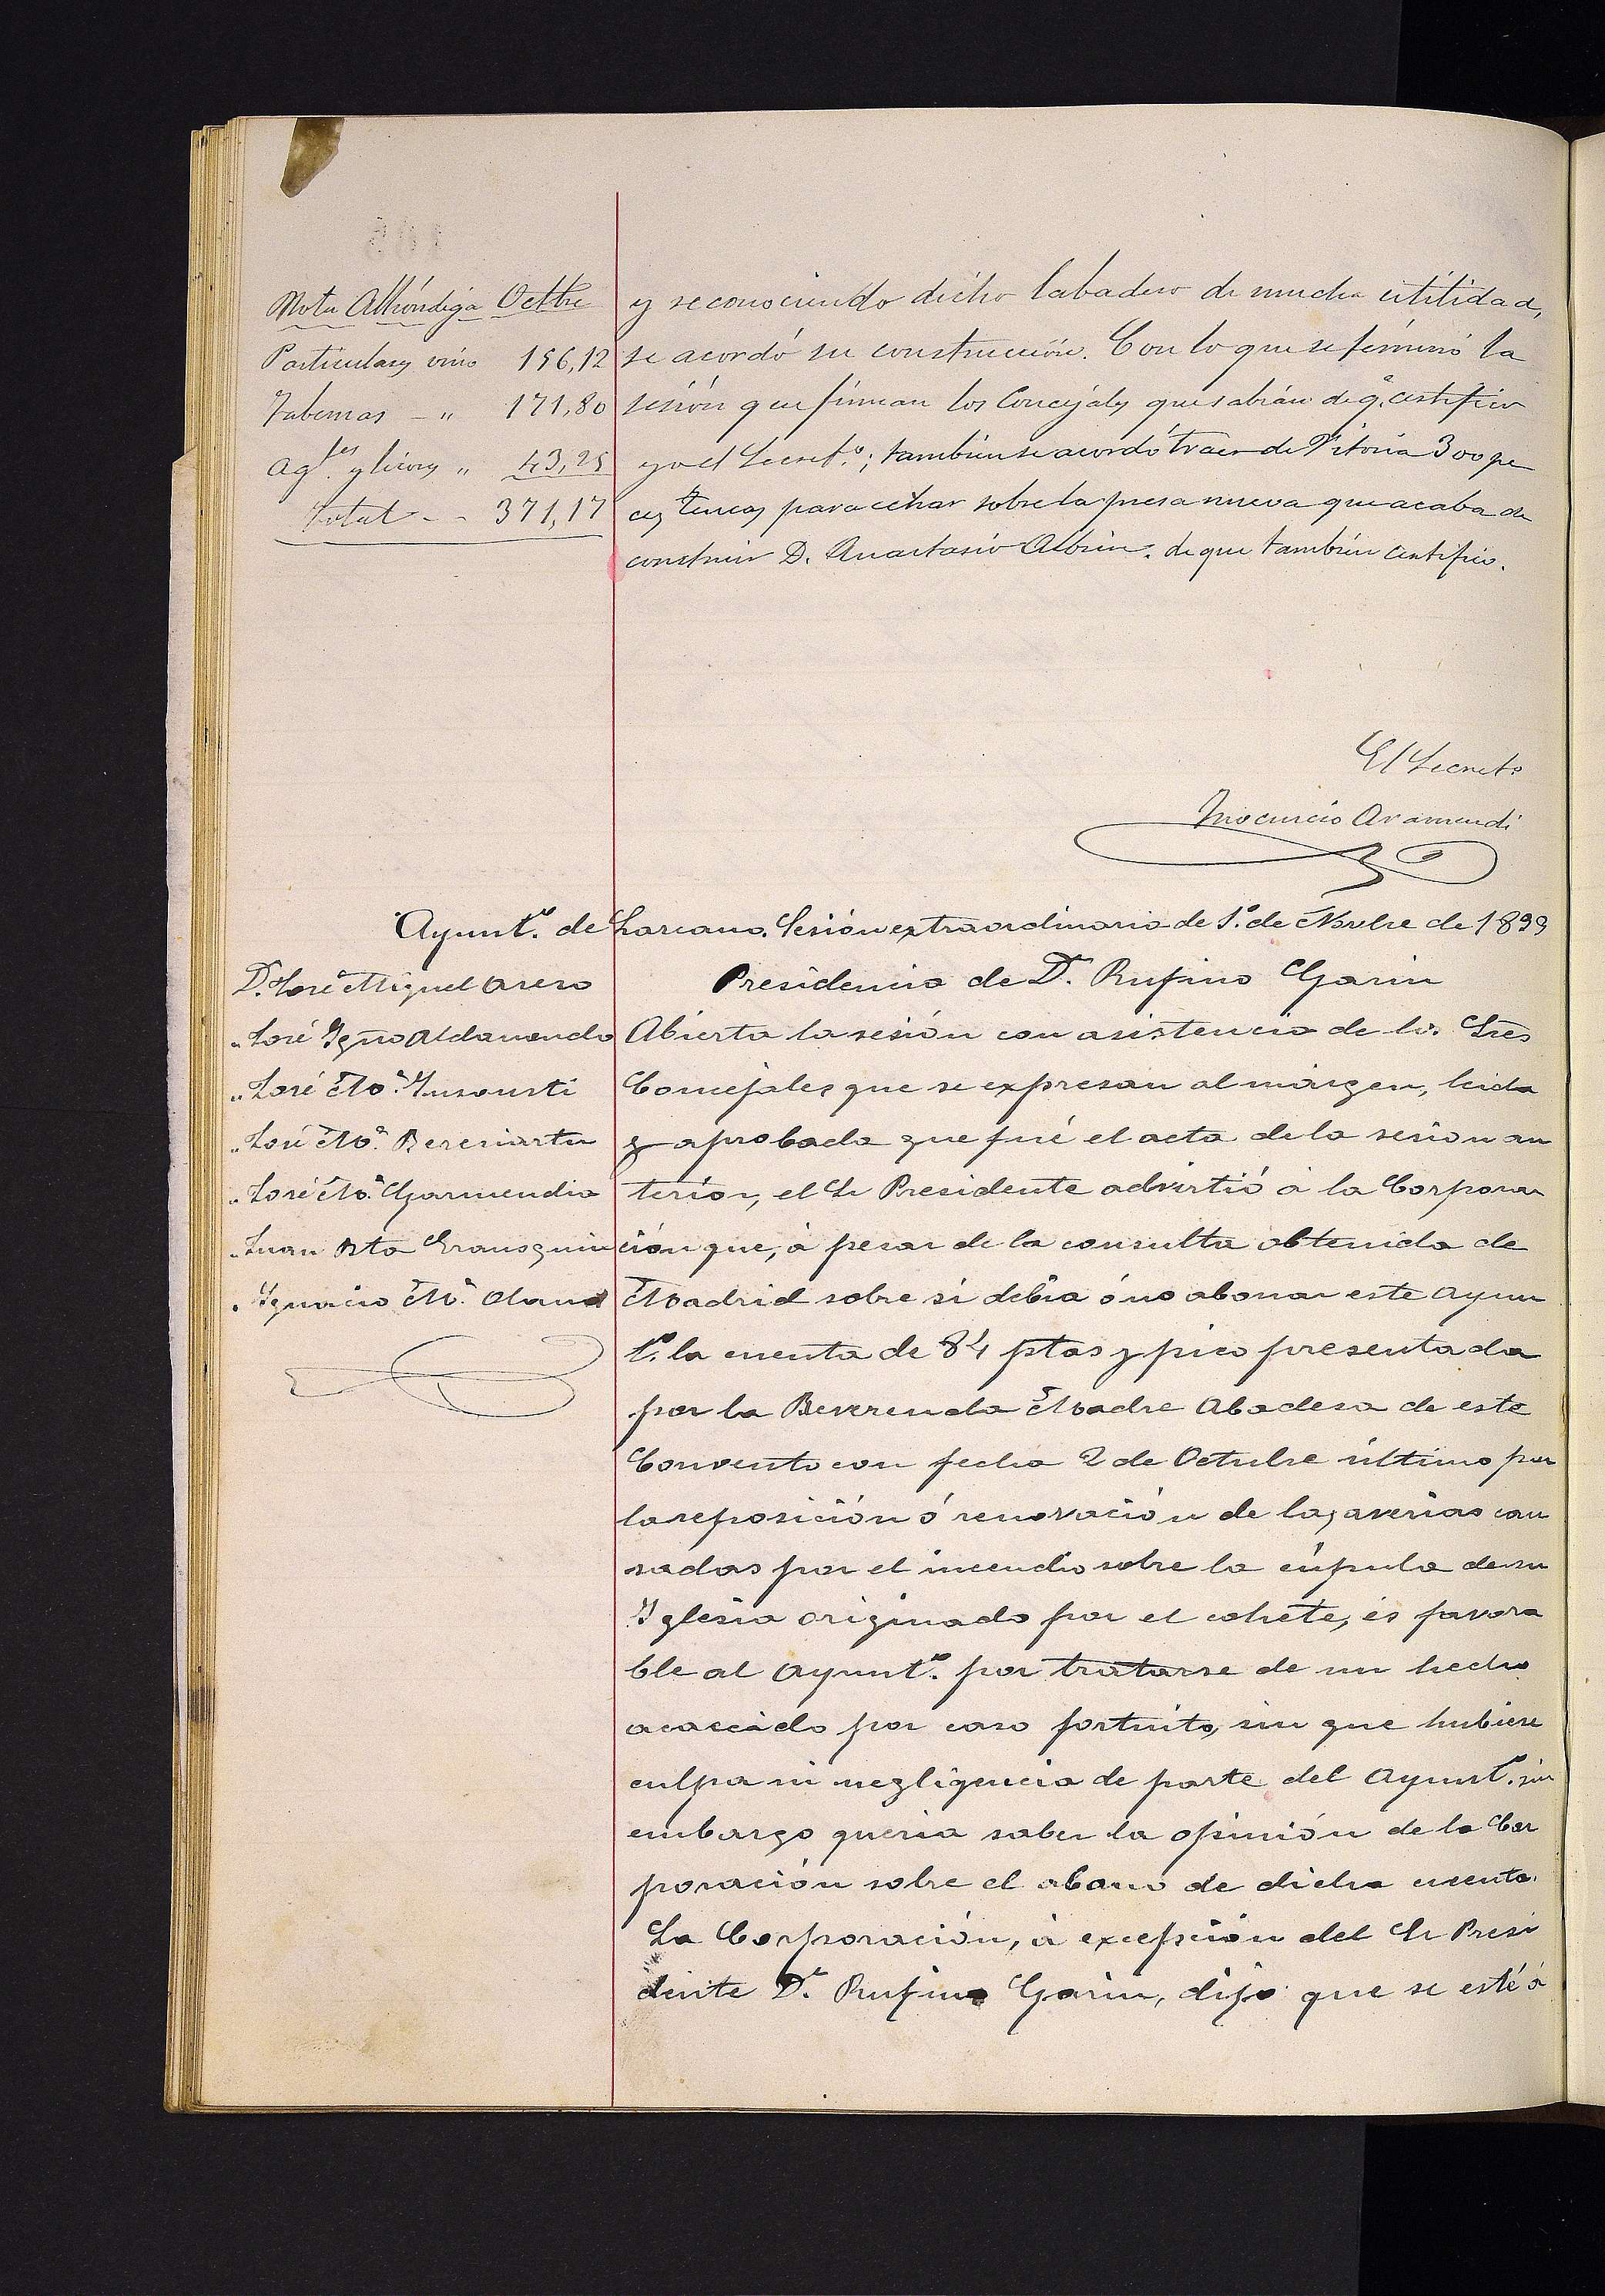 Nota Alhóndiga Octbre
Particulares vino 156,12
Tabernas - " 171,80
Agtes y licores " 43,25
Total - - 371,17
y reconociendo dicho labadero de mucha utilidad,
se acordó su construcción. Con lo que se terminó la
sesión que firman los Concejales que sabían de q.e certifico
yo el Secret.o; también se acordó traer de Vitoria 300 pe
ces tencas para echar sobre la presa nueva que acaba de
construir D. Anastasio de que también certifico.
El Secreto
Inocencio Aramendi
Ayunt.o de Lazcano. Sesión extraordinaria de 1.o de Novbre de 1899
D.n José Miguel Areso
" José Ygno Aldanondo
" José M.a Ynsausti
" José M.a Bereciartu
" José M.a Garmendia
" Juan Bta
" Ygnacio M.a
Presidencia de D.n Rufino Garin
Abierta la sesión con asistencia de los Sres
Concejales que se expresan al márgen, leida
y aprobada que fué el acta de la sesion an
terior, el Sr Presidente advirtió á la Corpora
ción que, á pesar de la consulta obtenida de
Madrid sobre si debia ó no abonar este Ayun
t.o la cuenta de 84 ptas y pico presentada
por la Reverenda Madre Abadesa de este
Convento con fecha 2 de Octubre último por
la reposición ó renovación de las averias cau
sadas por el incendio sobre la cúpula de su
Yglesia originado por el cohete, es favora
ble al Ayunt.o por tratarse de un hecho
acaecido por caso fortuito, sin que hubiese
culpa ni negligencia de parte del Ayunt.o sin
embargo queria saber la opinión de la Cor
poración sobre el abono de dicha cuenta.
La Corporación, á excepción del Sr Presi
dente D.n Rufino Garin, dijo que se esté á